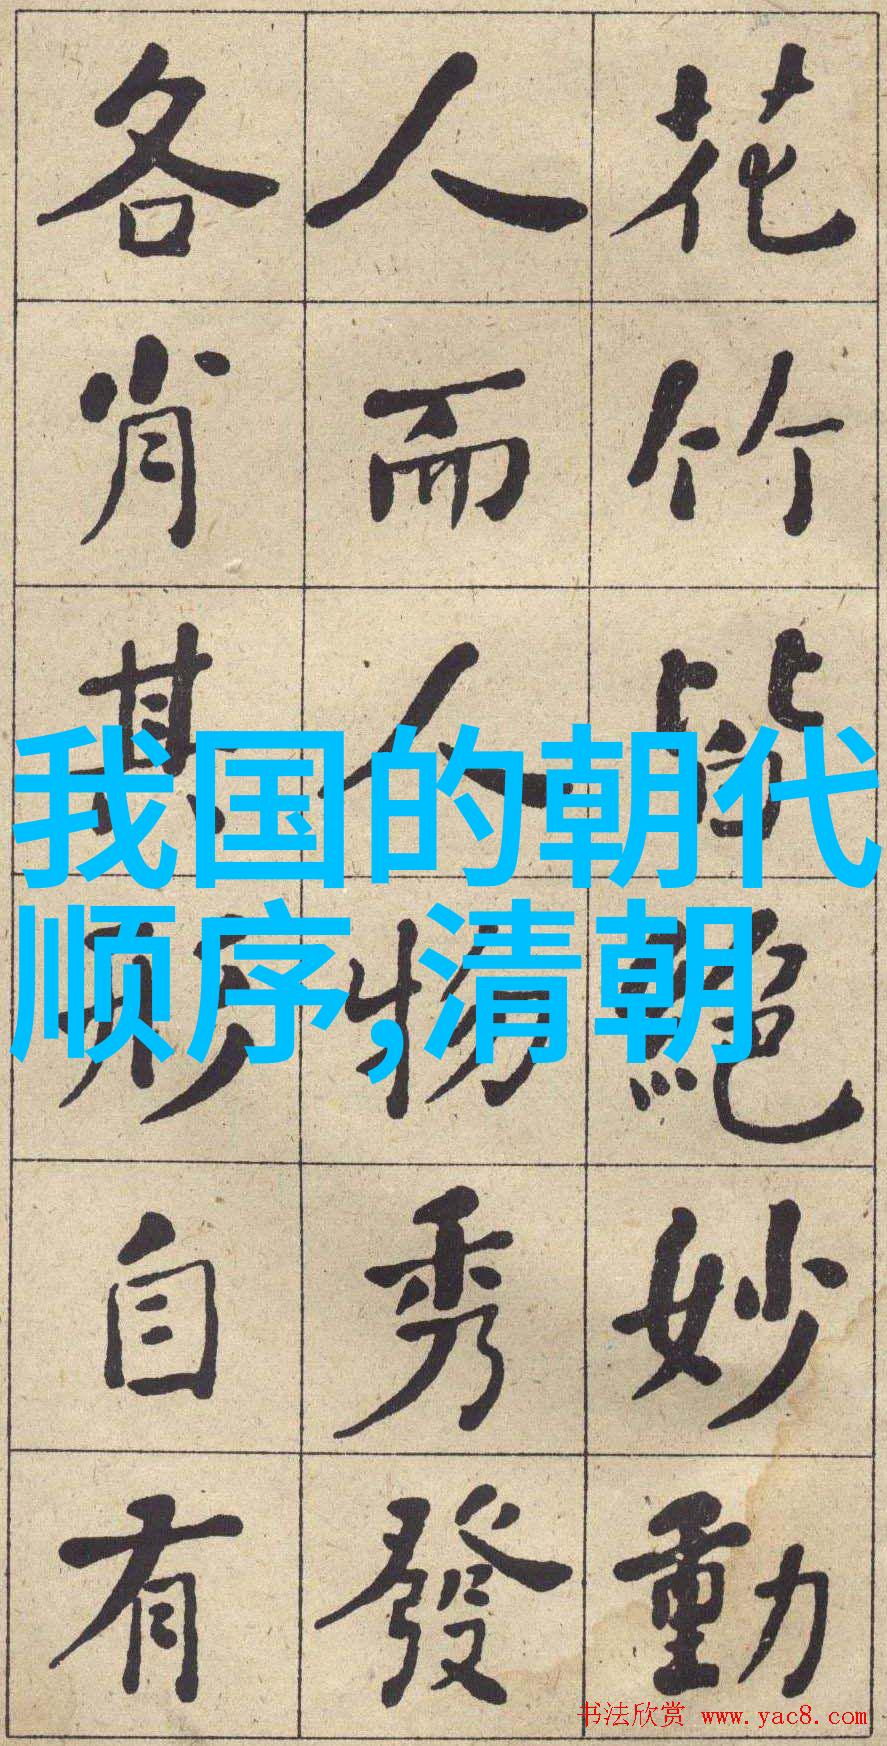 花竹皆絕妙動
人而人物秀發
各肖其形自有
我国的朝代
顺序,清朝
书法欣赏 www.yac8.com